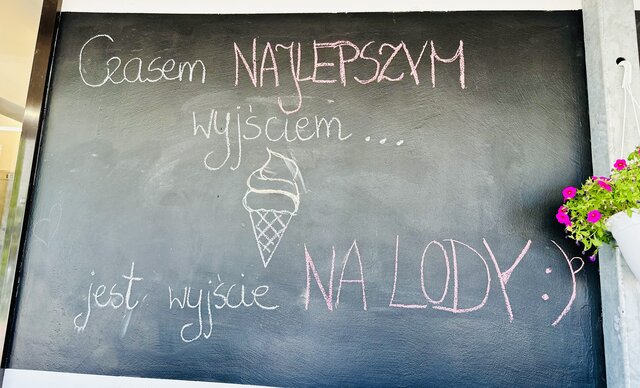 Czasem NAJLEPSZYM
wyjściem...
jest wyjście NA LODY :)